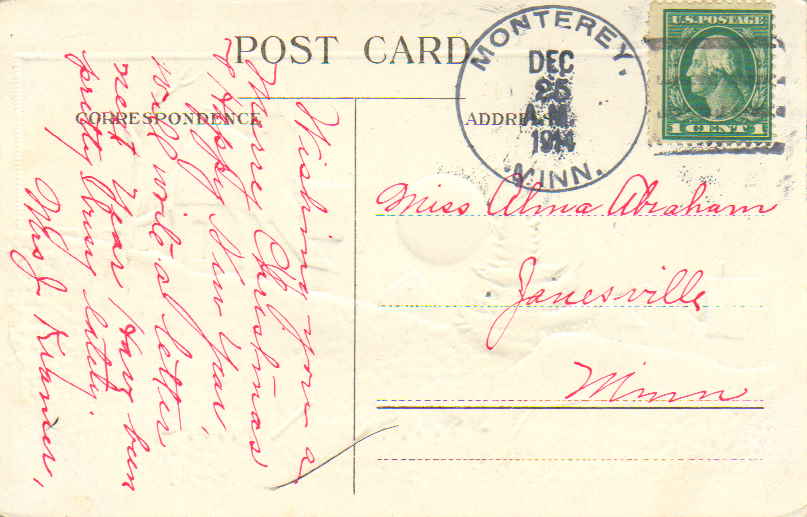 POST CARD
CORRESPONDENCE
ADDRESS
MONTEREY.
DEC
25
A.M.
1914
MINN.
U.S. POSTAGE
1 CENT 1
Wishing you a
Merry Christmas
& Happy New Year,
will write a letter
next year, Have been
pretty busy lately.
Mrs J. Kramer,
Miss Alma Abraham
Janesville
Minn